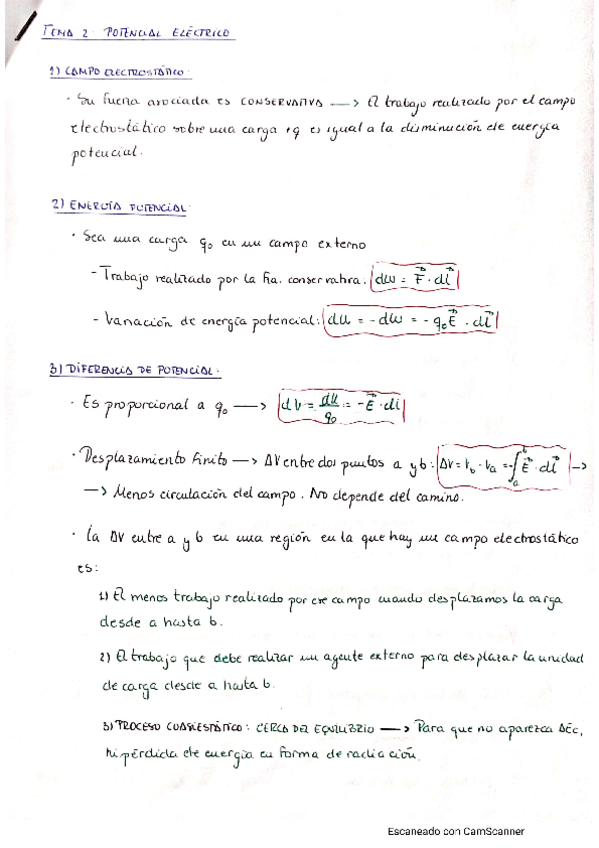 TEMA 2. POTENCIAL ELÉCTRICO
1) CAMPO ELECTROSTÁTICO.
· Su fuerza asociada es CONSERVATIVA → El trabajo realizado por el campo
electrostático sobre una carga +q es igual a la disminución de energía
potencial.
2) ENERGÍA POTENCIAL.
· Sea una carga q₀ en un campo externo
- Trabajo realizado por la fza. conservativa: dw = F⃗ · dl⃗
- Variación de energía potencial: du = -dw = -q₀E⃗ · dl⃗
3) DIFERENCIA DE POTENCIAL.
· Es proporcional a q₀ → dV = du/q₀ = -E⃗ · dl⃗
· Desplazamiento finito → ΔV entre dos puntos a y b: ΔV = V_b - V_a = -∫_a^b E⃗ · dl⃗ →
→ Menos circulación del campo. No depende del camino.
· La ΔV entre a y b en una región en la que hay un campo electrostático
es:
1) El menos trabajo realizado por ese campo cuando desplazamos la carga
desde a hasta b.
2) El trabajo que debe realizar un agente externo para desplazar la unidad
de carga desde a hasta b.
3) PROCESO CUASIESTÁTICO: CERCA DEL EQUILIBRIO → Para que no aparezca ΔEc,
ni pérdida de energía en forma de radiación.
Escaneado con CamScanner